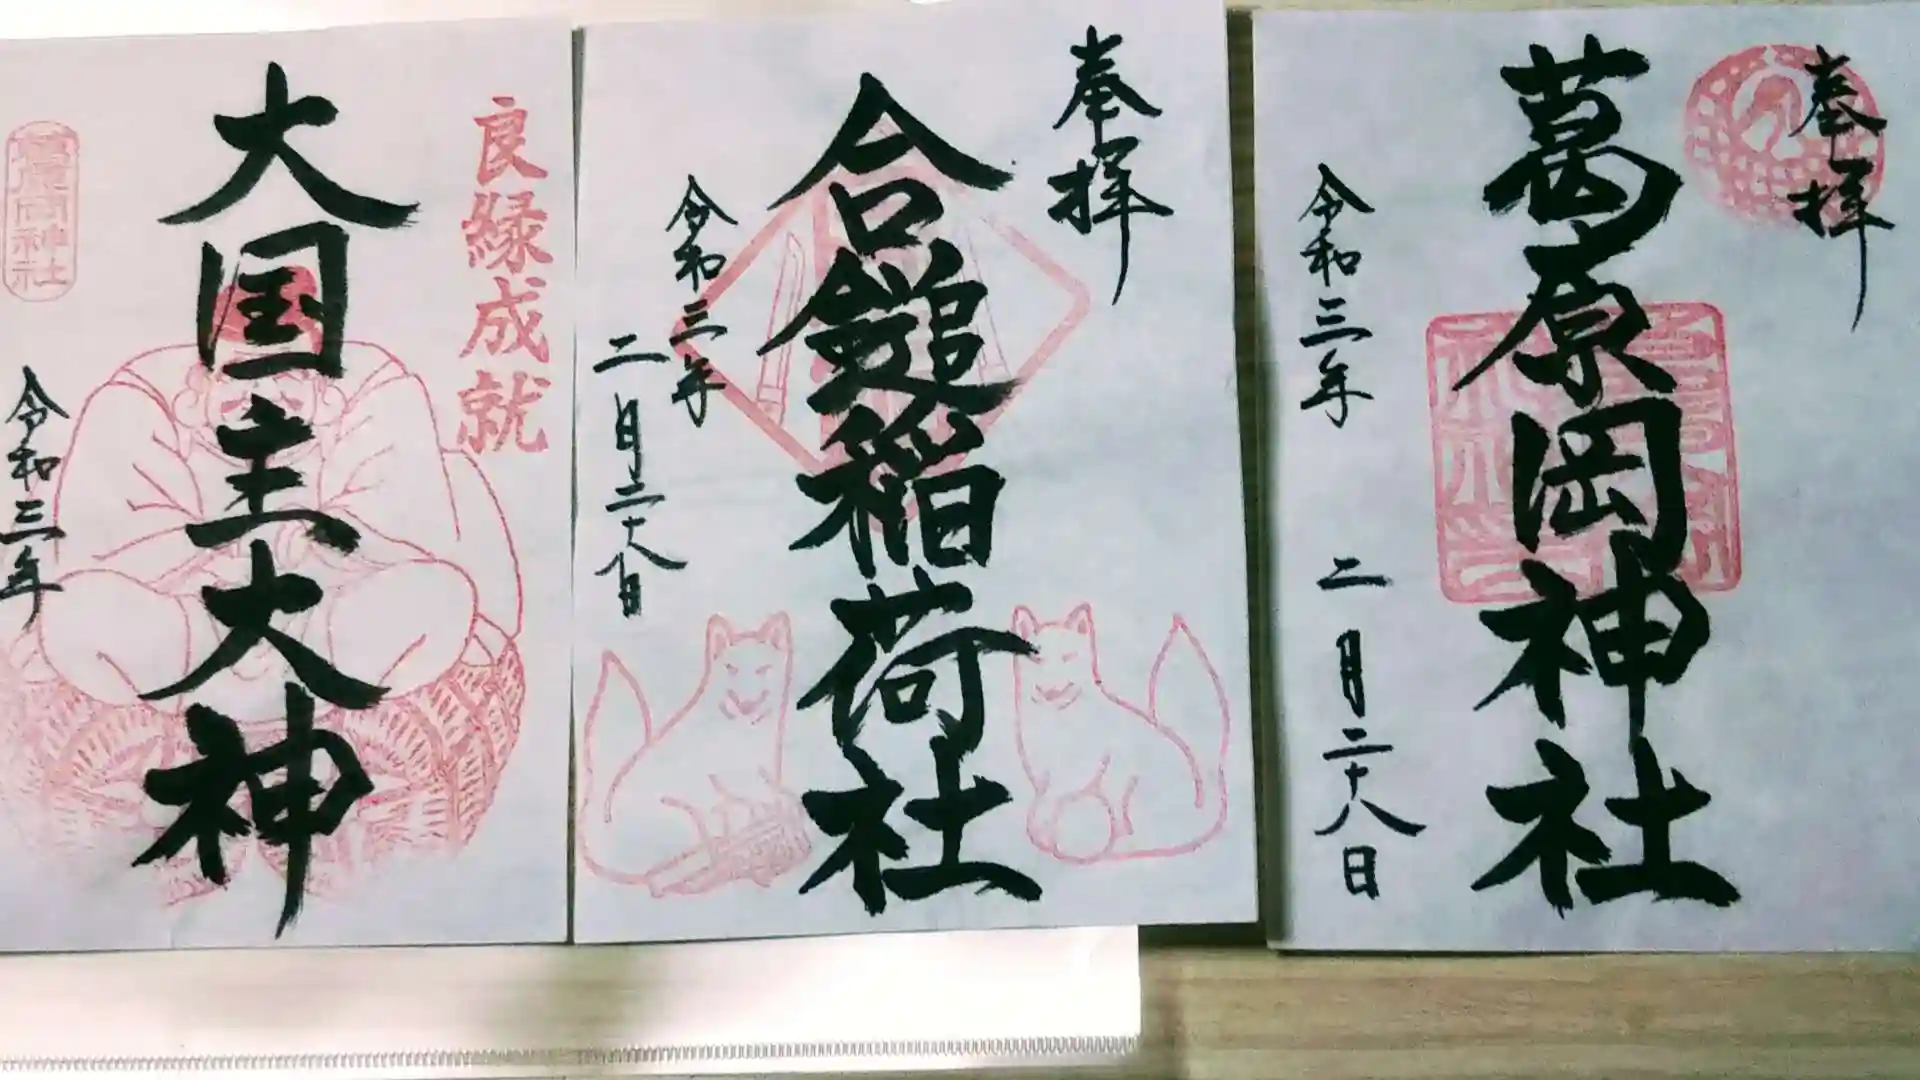 奉拝
葛原岡神社
令和三年
二月二十八日
奉拝
合鎚稲荷社
令和三年
二月二十八日
良縁成就
大国主大神
葛原岡神社
令和三年